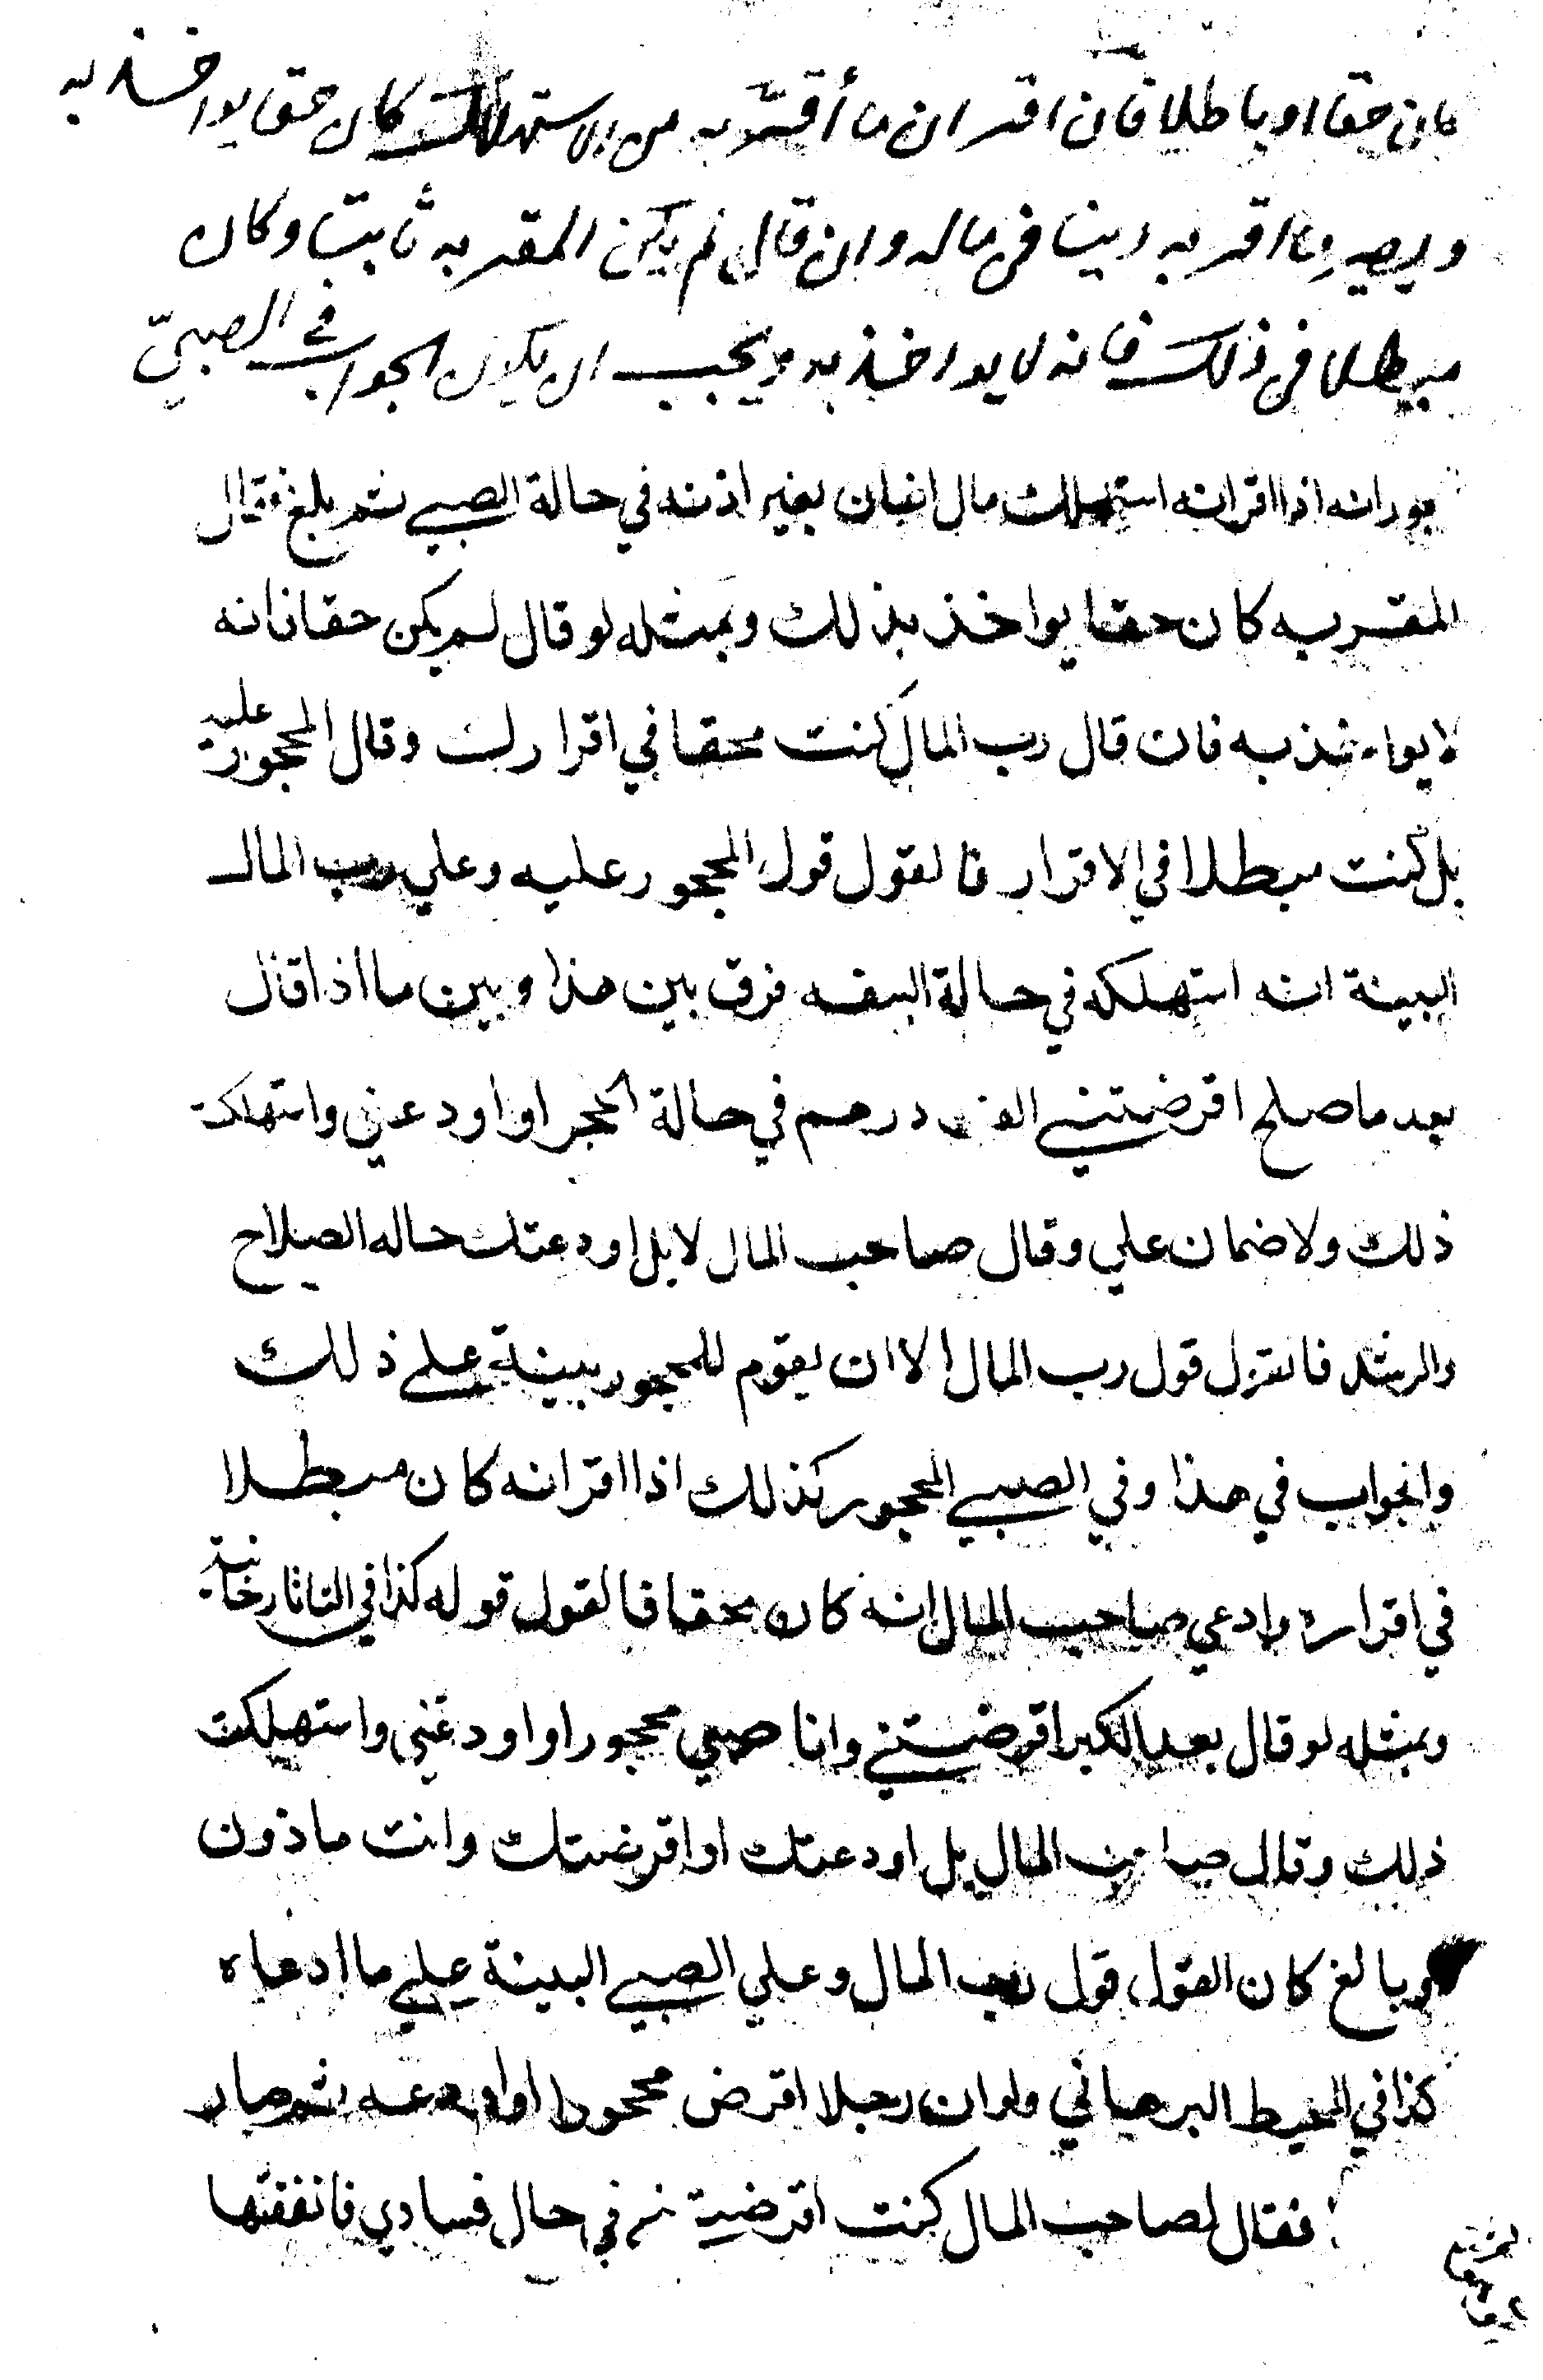 كان حقا او باطلا فان اقر ان ما أقر به من الاستهلاك كان حقا يواخذ به
ويصير ما اقر به دينا فى ماله وان قال لم يكن المقر به ثابتا وكان
مبطلا فى ذلك فانه لا يواخذ به ويجب ان يكون الجواب فى الصبيّ
انه اذا اقر انه استهلك مال انسان بغير اذنه في حالة الصبي ثم بلغ فقال
المقر به كان حقا يواخذ بذلك وبمثله لو قال لم يكن حقا فانه
لا يواخذ به فان قال رب المال كنت محقا في اقرارك وقال المحجور عليه
بل كنت مبطلا في الاقرار فالقول قول المحجور عليه وعلي رب المال
البينة انه استهلكه في حالة السفه فرق بين هذا وبين ما اذا قال
بعد ما صلح اقرضتني الف درهم في حالة الحجر او اودعني واستهلكت
ذلك ولا ضمان علي وقال صاحب المال لا بل اودعتك حاله الصلاح
والرشد فالقول قول رب المال الا ان يقوم للمحجور بينة علي ذلك
والجواب في هذا وفي الصبي المحجور كذلك اذا اقر انه كان مبطلا
في اقراره وادعي صاحب المال انه كان محقا فالقول قوله كذا في التاتارخانية
وبمثله لو قال بعد الكبر اقرضتني وانا صبي محجور او اودعني واستهلكت
ذلك وقال صاحب المال بل اودعتك او اقرضتك وانت ماذون
وبالغ كان القول قول رب المال وعلي الصبي البينة علي ما ادعاه
كذا في المحيط البرهاني ولو ان رجلا اقرض محجورا او اودعه ثم صار
فقال لصاحب المال كنت اقرضتني في حال فسادي فانفقتها